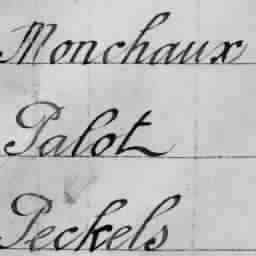 Monchaux
Palot
Peckels